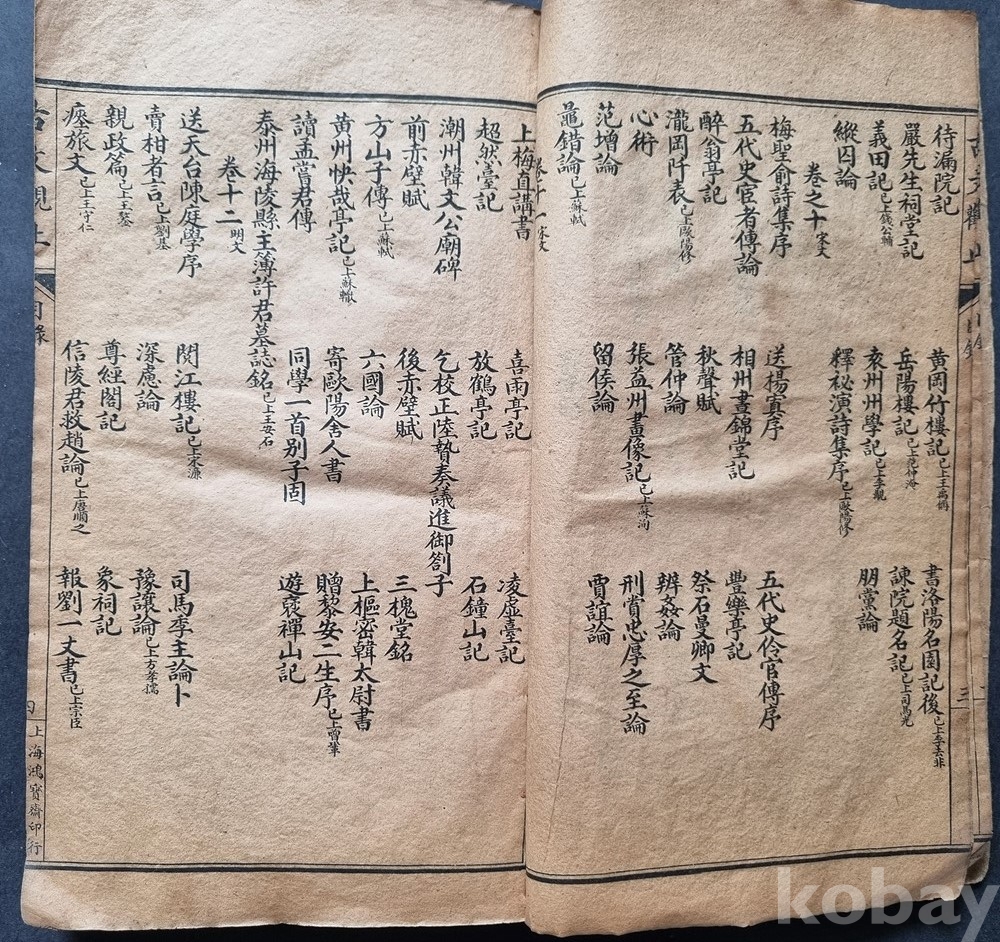 古文觀止 目錄 三
待漏院記 黃岡竹樓記已上王禹偁 書洛陽名園記後已上李去非
嚴先生祠堂記 岳陽樓記已上范仲淹 諫院題名記已上司馬光
義田記已上錢公輔 袁州州學記已上李覯 朋黨論
縱囚論 釋祕演詩集序已上歐陽修
卷之十宋文
梅聖俞詩集序 送楊寘序 五代史伶官傳序
五代史宦者傳論 相州晝錦堂記 豐樂亭記
醉翁亭記 秋聲賦 祭石曼卿文
瀧岡阡表已上歐陽修 管仲論 辨姦論
心術 張益州畫像記已上蘇洵 刑賞忠厚之至論
范增論 留侯論 賈誼論
鼂錯論已上蘇軾
卷之十一宋文
上梅直講書 喜雨亭記 凌虛臺記
超然臺記 放鶴亭記 石鐘山記
潮州韓文公廟碑 乞校正陸贄奏議進御劄子
前赤壁賦 後赤壁賦 三槐堂銘
方山子傳已上蘇軾 六國論 上樞密韓太尉書
黃州快哉亭記已上蘇轍 寄歐陽舍人書 贈黎安二生序已上曾鞏
讀孟嘗君傳 同學一首別子固 遊褒禪山記
泰州海陵縣主簿許君墓誌銘已上王安石
卷十二明文
送天台陳庭學序 閱江樓記已上宋濂 司馬季主論卜
賣柑者言已上劉基 深慮論 豫讓論已上方孝孺
親政篇已上王鏊 尊經閣記 象祠記
瘞旅文已上王守仁 信陵君救趙論已上唐順之 報劉一丈書已上宗臣
古文觀止 目錄 四 上海鴻寶齋印行
kobay